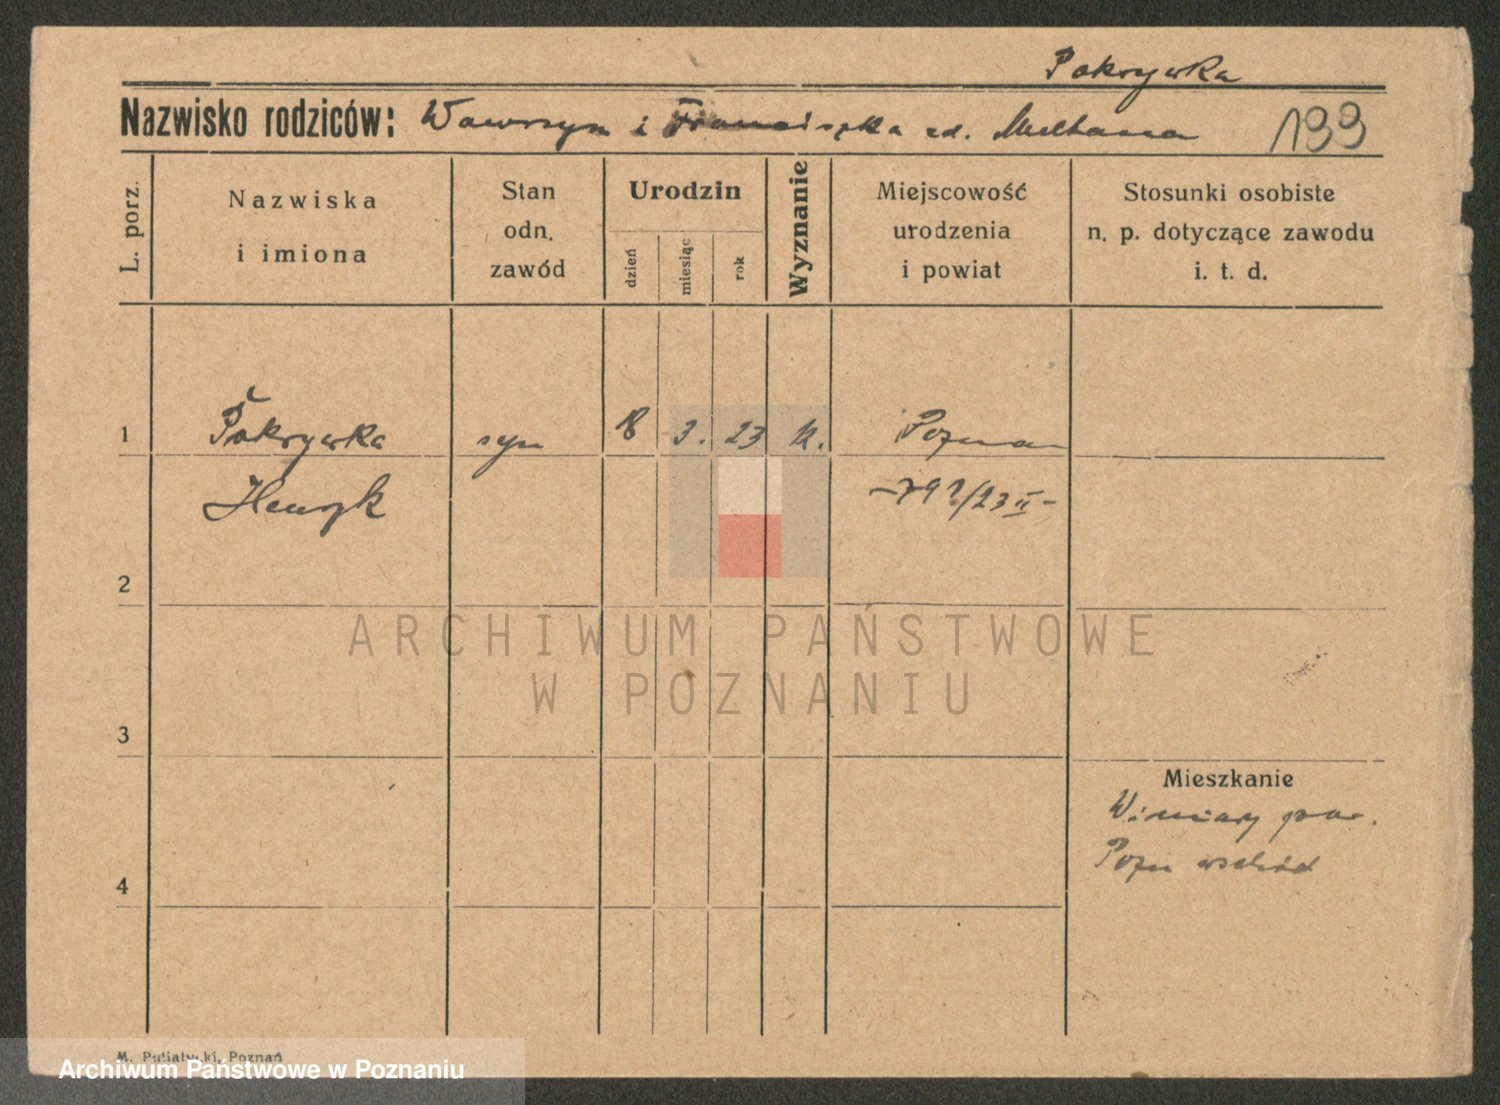 Pokrywka
Nazwisko rodziców: Wawrzyn i Franciszka zd.
199
L. porz.
Nazwiska
i imiona
Stan
odn.
zawód
Urodzin
dzień
miesiąc
rok
Wyznanie
Miejscowość
urodzenia
i powiat
Stosunki osobiste
n. p. dotyczące zawodu
i. t. d.
1 Pokrywka syn 18 3. 23 k. Poznan
Henryk
2
3
4
Mieszkanie
Winiary pow.
Pozn wschód
ARCHIWUM PAŃSTWOWE
W POZNANIU
M. Putiatycki, Poznań
Archiwum Państwowe w Poznaniu